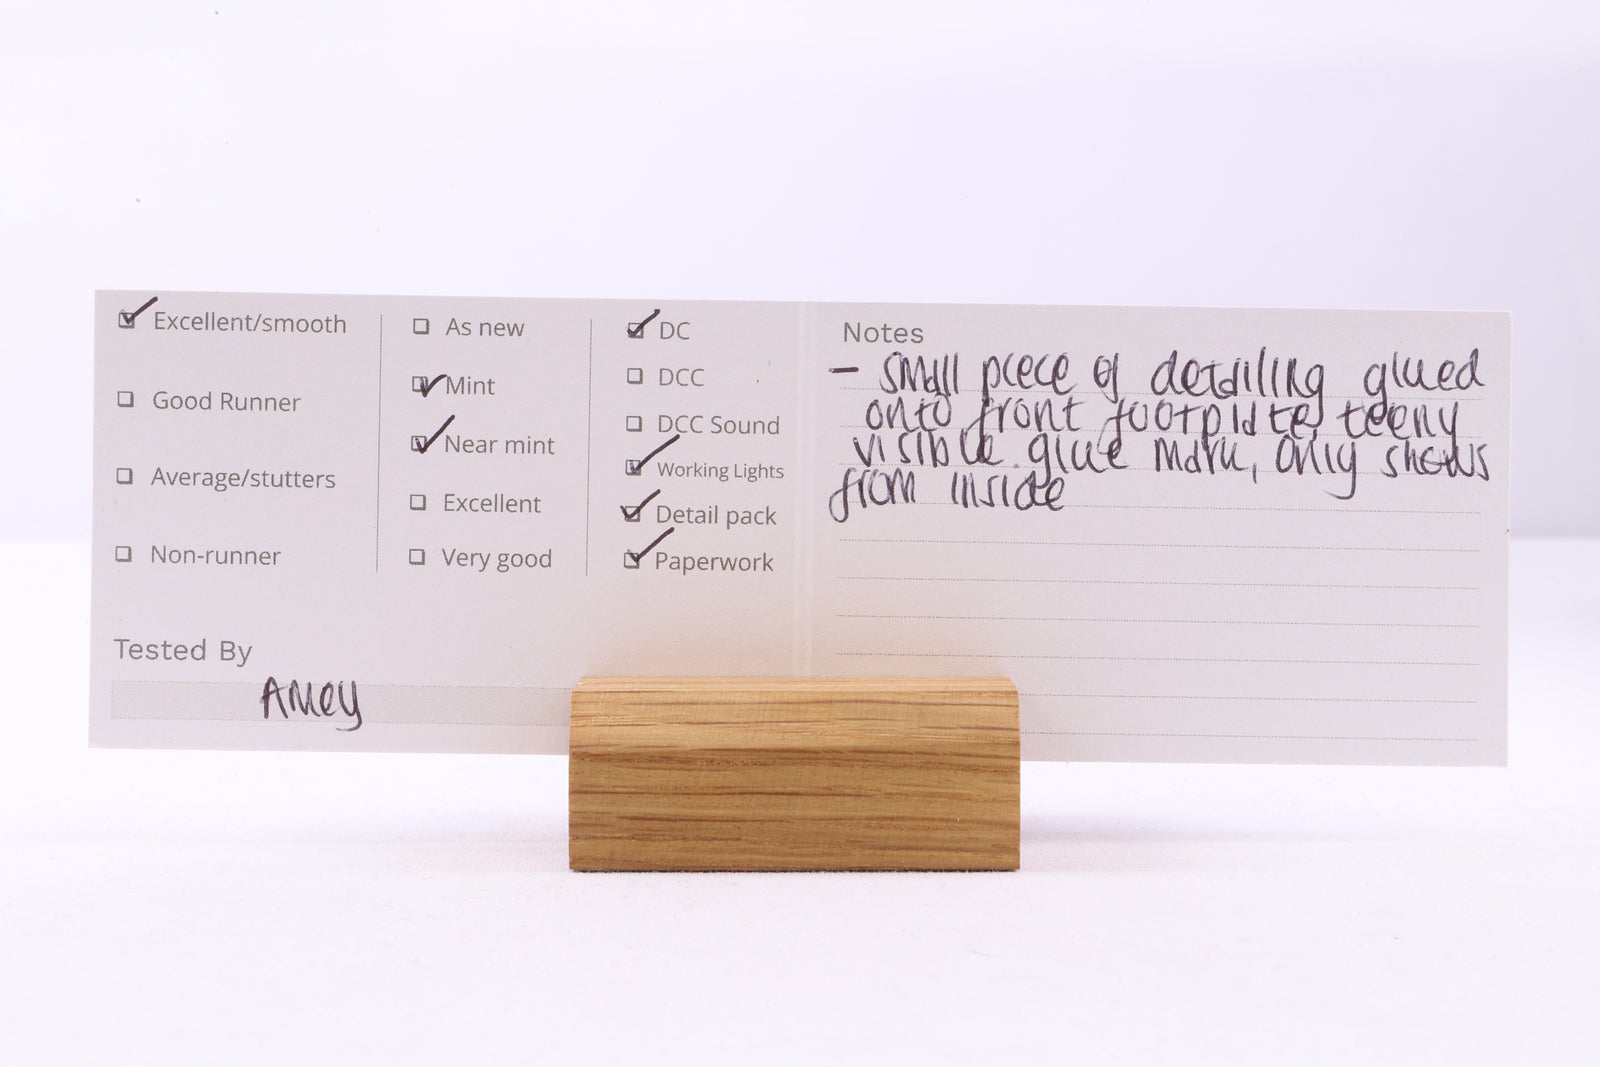 ☑ Excellent/smooth
☐ Good Runner
☐ Average/stutters
☐ Non-runner
☐ As new
☑ Mint
☑ Near mint
☐ Excellent
☐ Very good
☑ DC
☐ DCC
☐ DCC Sound
☑ Working Lights
☑ Detail pack
☑ Paperwork
Tested By
Amey
Notes
- Small piece of detailing glued
onto front footplate, teeny
visible glue mark, only shows
from inside